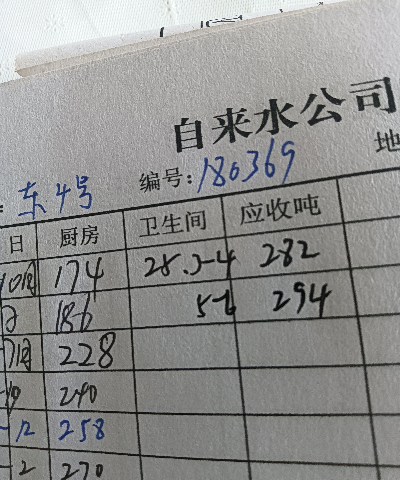 自来水公司
东4号 编号:180369 地
日 厨房 卫生间 应收吨
174 25.3-4 282
186 5-6 294
228
240
-12 258
-2 270